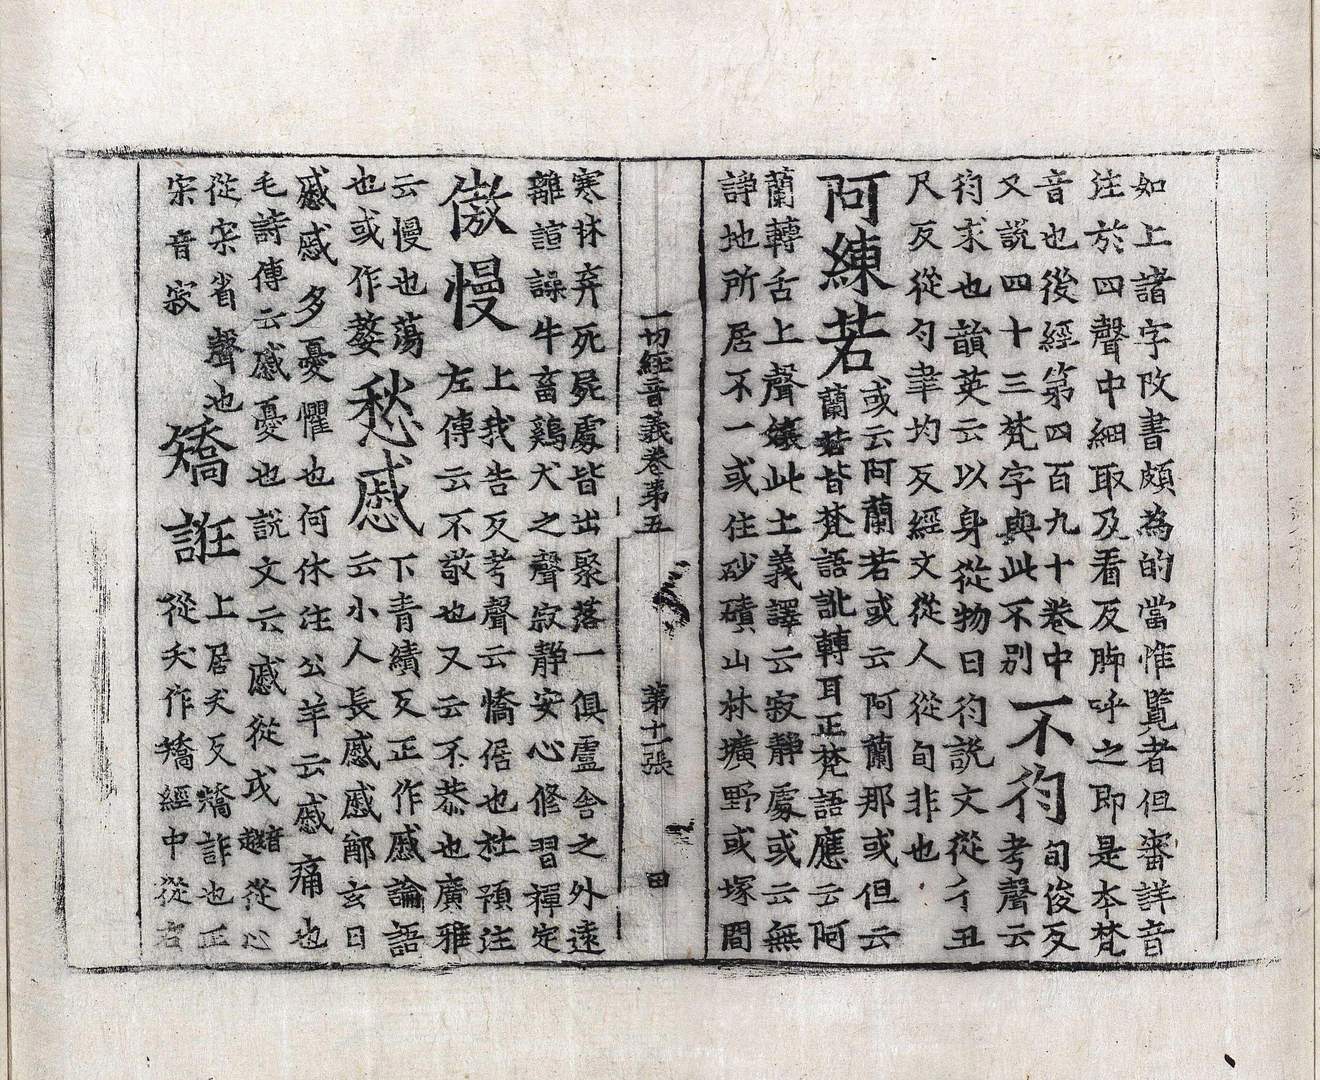 如上諸字攷書頗為的當惟覽者但審詳音
注於四聲中細取及看反脚呼之即是本梵
音也後經第四百九十卷中
又說四十三梵字與此不別
不徇
旬俊反
考聲云
徇求也韻英云以身從物曰徇說文從彳丑
尺反從勺聿均反經文從人從旬非也
阿練若
或云阿蘭若或云阿蘭那或但云
蘭若皆梵語訛轉耳正梵語應云阿
蘭轉舌上聲孃此土義譯云寂靜處或云無
諍地所居不一或住砂磧山林壙野或塚間
一切經音義卷第五 第十一張 田
寒林弃死屍處皆出聚落一俱盧舍之外遠
離諠譟牛畜鷄犬之聲寂靜安心修習禪定
傲慢
上我告反考聲云憍倨也杜預注
左傳云不敬也又云不恭也廣雅
云慢也蕩
也或作嫯
愁慼
下青績反正作慼論語
云小人長慼慼鄭玄曰
慼慼多憂懼也何休注公羊云慼痛也
毛詩傳云慼憂也說文云慼從戉音越從心
從宋省聲也
宋音寂
矯誑
上居夭反矯詐也正
從夭作矯經中從右